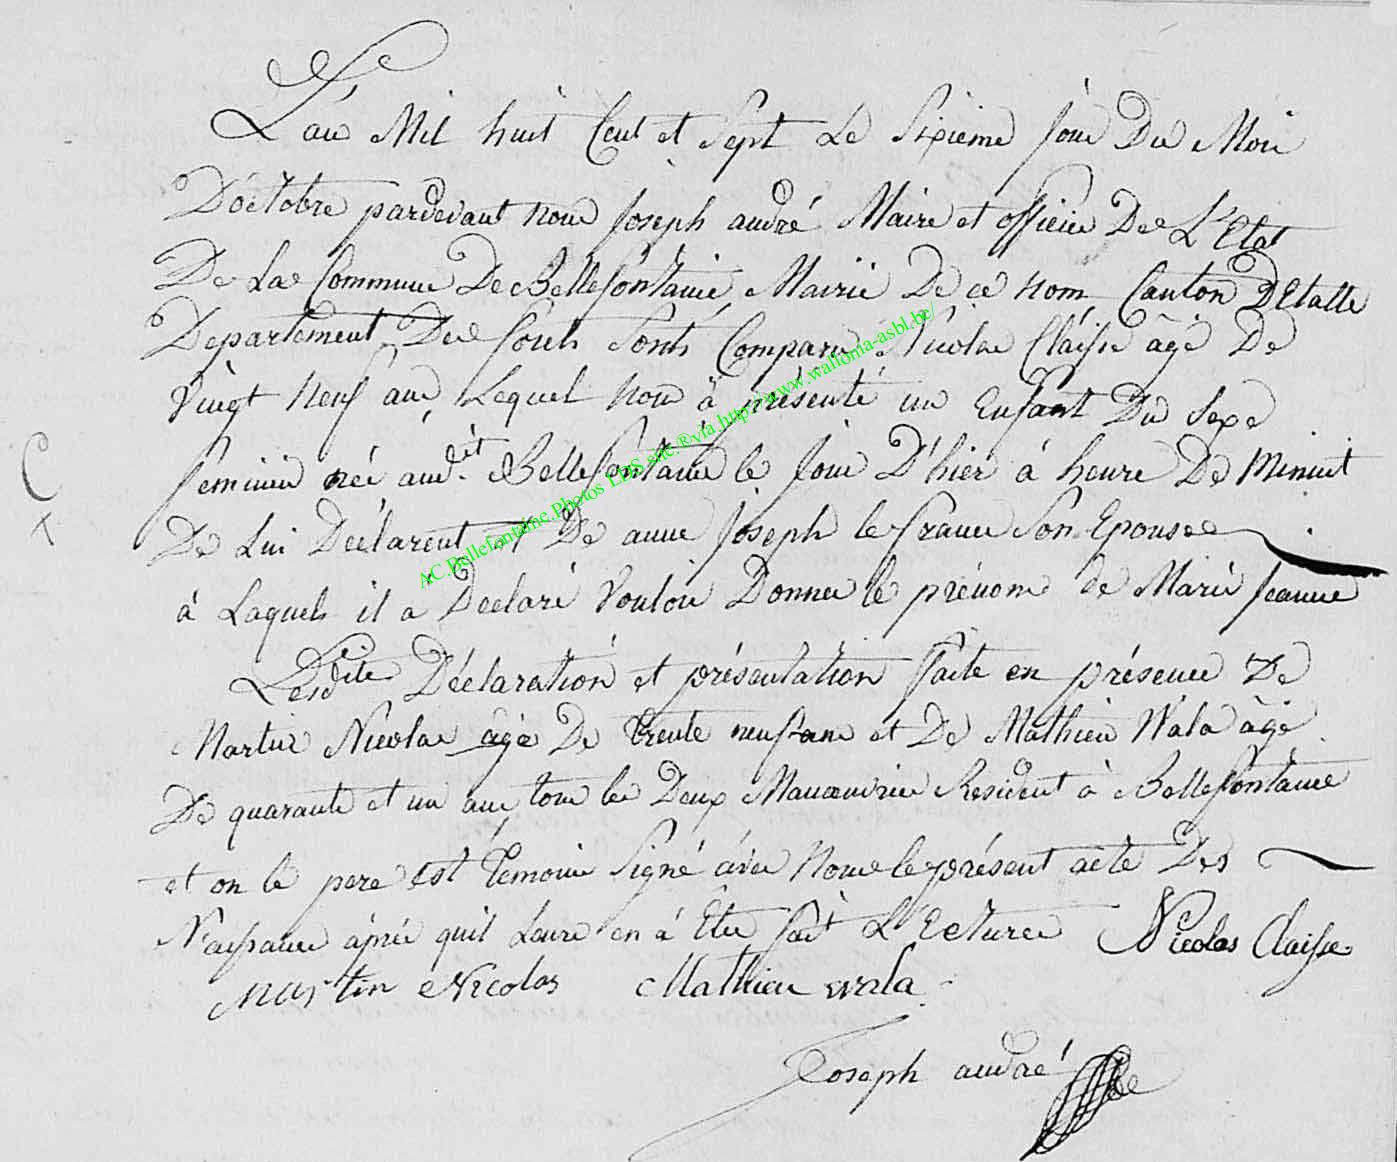 L'an Mil huit Cent et Sept Le Sixieme Jour Du Moi
D'octobre pardevant nous Joseph andré Maire et officier De L'Etat
De La Commune De Bellefontaine Mairie De ce nom Canton DEtalle
Departement Des forets Sonts Comparu Nicolas Claisse âgé De
Vingt neuf ans Lequel nous à présenté un Enfant Du Sexe
feminin née aud.it Bellefontaine le Jour D'hier à heure De Minuit
De Lui Déclarent et De anne Joseph le franc Son Epousee
à Laquels il a Déclaré Vouloir Donner le prénom de Marie Jeanne
Lesdite Déclaration et présentation faite en présence De
Martin Nicolas âgé De trente neuf ans et De Mathieu Wala âgé
De quarante et un ans tous les Deux Manœuvrier Resident à Bellefontaine
et on le pere est témoins Signé avec Nous le présent acte Des
Naissance après quil Leure en à Eté fait L'Ecturee Nicolas Claisse
Martin Nicolas Mathieu wala
Joseph andré
C
+
AC.Bellefontaine.Photos LDS.site.®via http://www.wallonia-asbl.be/